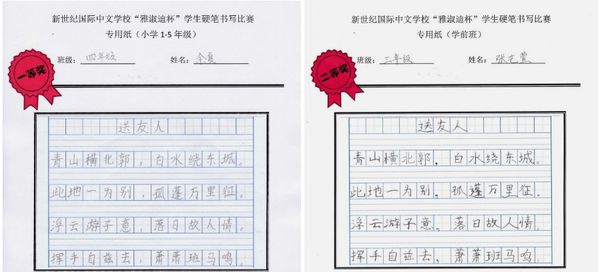 新世纪国际中文学校“雅淑迪杯”学生硬笔书写比赛
专用纸（小学1-5年级）
班级：四年级 姓名：
一等奖
送友人
青山横北郭，白水绕东城。
此地一为别，孤蓬万里征。
浮云游子意，落日故人情。
挥手自兹去，萧萧班马鸣。
新世纪国际中文学校“雅淑迪杯”学生硬笔书写比赛
专用纸（学前班）
班级：三年级 姓名：
二等奖
送友人
青山横北郭，白水绕东城。
此地一为别，孤蓬万里征。
浮云游子意，落日故人情。
挥手自兹去，萧萧班马鸣。